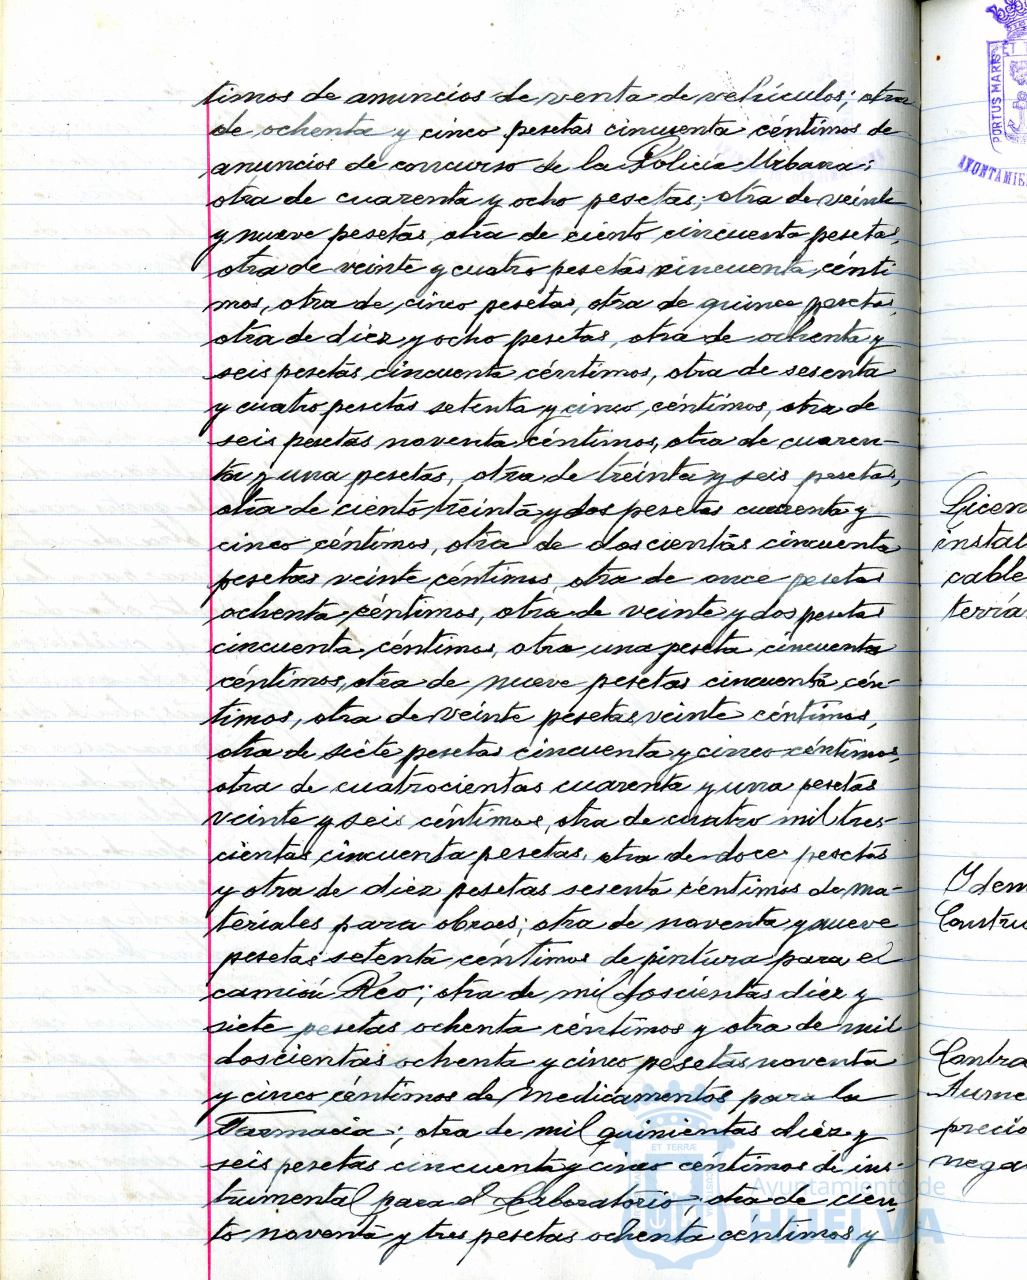 timos de anuncios de venta de vehículos; otra
de ochenta y cinco pesetas cincuenta céntimos de
anuncios de concurso de la Policia Urbana;
otra de cuarenta y ocho pesetas; otra de veinte
y nueve pesetas, otra de ciento cincuenta pesetas,
otra de veinte y cuatro pesetas cincuenta, cénti
mos, otra de cinco pesetas, otra de quince pesetas,
otra de diez y ocho pesetas, otra de ochenta y
seis pesetas cincuenta céntimos, otra de sesenta
y cuatro pesetas setenta y cinco céntimos, otra de
seis pesetas noventa céntimos, otra de cuaren-
ta y una pesetas, otra de treinta y seis pesetas,
otra de ciento treinta y dos pesetas cuarenta y
cinco céntimos, otra de doscientas cincuenta
pesetas veinte céntimos, otra de once pesetas
ochenta céntimos, otra de veinte y dos pesetas
cincuenta céntimos, otra una peseta cincuenta
céntimos, otra de nueve pesetas cincuenta cén-
timos, otra de veinte pesetas veinte céntimos,
otra de siete pesetas cincuenta y cinco céntimos,
otra de cuatrocientas cuarenta y una pesetas
veinte y seis céntimos, otra de cuatro mil tres-
cientas cincuenta pesetas, otra de doce pesetas
y otra de diez pesetas sesenta céntimos de ma-
teriales para obras; otra de noventa y nueve
pesetas setenta céntimos de pintura para el
camión Reo; otra de mil doscientas diez y
siete pesetas ochenta céntimos y otra de mil
doscientas ochenta y cinco pesetas noventa
y cinco céntimos de medicamentos para la
Farmacia; otra de mil quinientas diez y
seis pesetas cincuenta y cinco céntimos de ins-
trumental para el Laboratorio; otra de cien-
to noventa y tres pesetas ochenta céntimos y
PORTUS MARIS
AYUNTAMIE
Licen
instal
cable
terría
Idem
Constru
Contra
Aume
precio
nega
ET TERRÆ
Ayuntamiento de
HUELVA